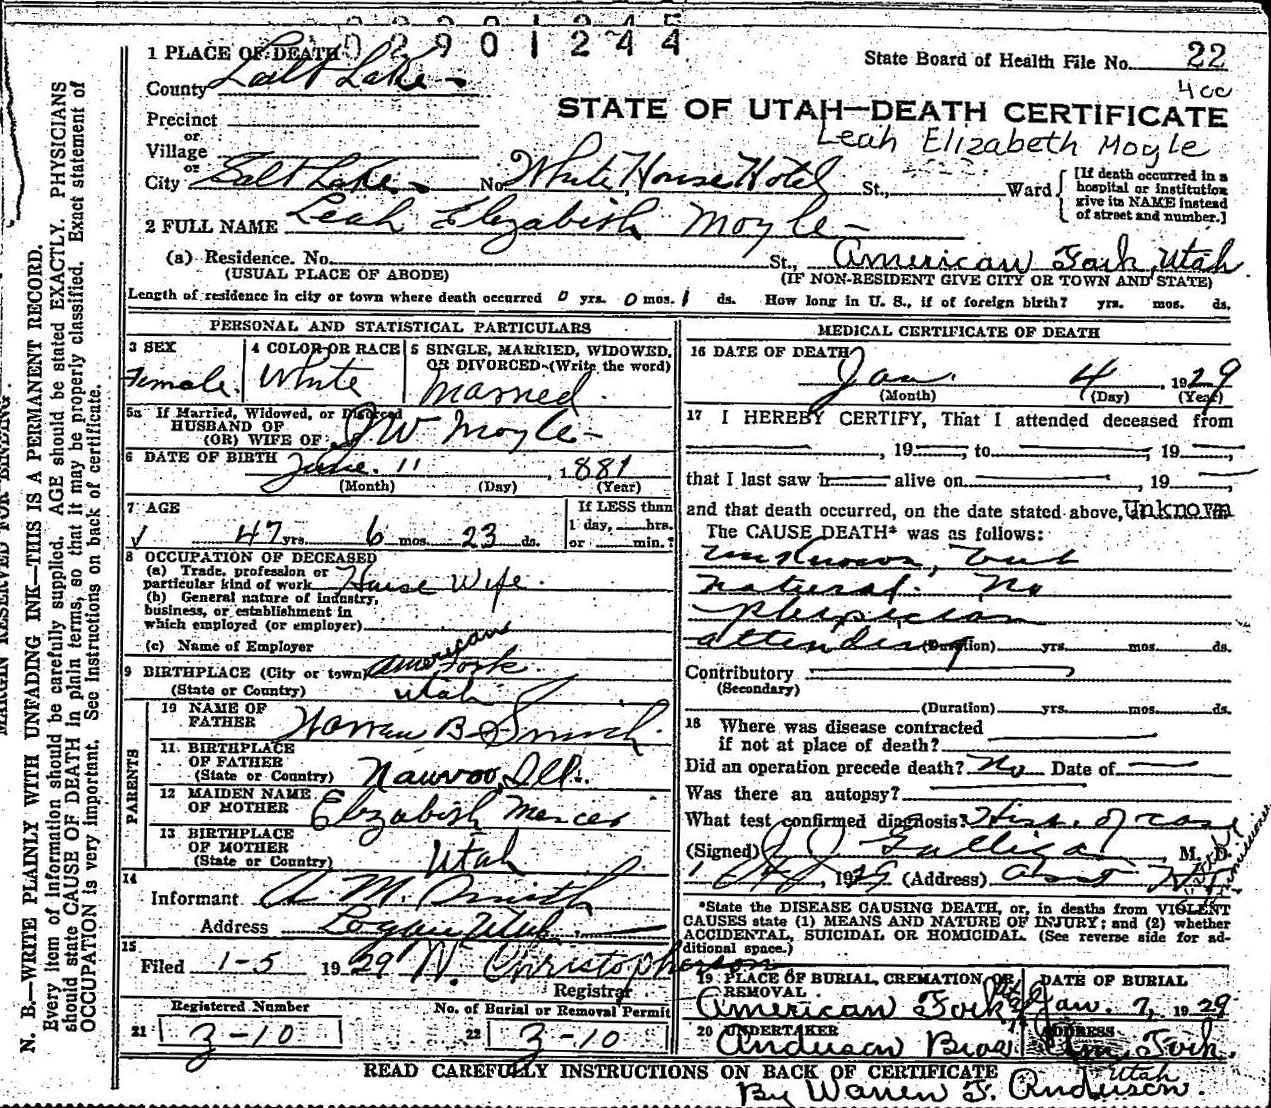 0 2 9 0 1 2 4 4
1 PLACE OF DEATH
County Salt Lake
State Board of Health File No. 22
400
STATE OF UTAH—DEATH CERTIFICATE
Leah Elizabeth Moyle
Precinct
or
Village
or
City Salt Lake No. White House Hotel St., Ward
[If death occurred in a
hospital or institution
give its NAME instead
of street and number.]
2 FULL NAME Leah Elizabeth Moyle
(a) Residence. No. St., American Fork, Utah.
(USUAL PLACE OF ABODE) (IF NON-RESIDENT GIVE CITY OR TOWN AND STATE)
Length of residence in city or town where death occurred 0 yrs. 0 mos. 1 ds. How long in U. S., if of foreign birth? yrs. mos. ds.
PERSONAL AND STATISTICAL PARTICULARS
3 SEX
Female.
4 COLOR OR RACE
White
5 SINGLE, MARRIED, WIDOWED,
OR DIVORCED (Write the word)
Married.
5a If Married, Widowed, or Divorced
HUSBAND OF
(OR) WIFE OF J W Moyle
6 DATE OF BIRTH June. 11, 1881
(Month) (Day) (Year)
7 AGE
47 yrs. 6 mos. 23 ds.
If LESS than
1 day, hrs.
or min.?
8 OCCUPATION OF DECEASED
(a) Trade, profession or
particular kind of work House Wife.
(b) General nature of industry,
business, or establishment in
which employed (or employer)
(c) Name of Employer
9 BIRTHPLACE (City or town) American Fork
(State or Country) Utah
PARENTS
10 NAME OF
FATHER Warren B. Smith.
11. BIRTHPLACE
OF FATHER
(State or Country) Nauvoo, Ill.
12 MAIDEN NAME
OF MOTHER Elizabeth Mercer
13 BIRTHPLACE
OF MOTHER
(State or Country) Utah
14
Informant A. M. Smith
Address Logan Utah
15
Filed 1-5 1929 N. Christopherson
Registrar
Registered Number
21 3-10
No. of Burial or Removal Permit
22 3-10
MEDICAL CERTIFICATE OF DEATH
16 DATE OF DEATH
Jan. 4, 1929
(Month) (Day) (Year)
17 I HEREBY CERTIFY, That I attended deceased from
, 19 , to , 19 ,
that I last saw h alive on , 19 ,
and that death occurred, on the date stated above, Unknown
The CAUSE DEATH* was as follows:
unknown, but
natural. No
physician
attending (Duration) yrs. mos. ds.
Contributory
(Secondary)
(Duration) yrs. mos. ds.
18 Where was disease contracted
if not at place of death?
Did an operation precede death? No Date of
Was there an autopsy?
What test confirmed diagnosis? Hist. of case
(Signed) J J Galligan M. D.
1929 (Address) Asst
*State the DISEASE CAUSING DEATH, or, in deaths from VIOLENT
CAUSES state (1) MEANS AND NATURE OF INJURY; and (2) whether
ACCIDENTAL, SUICIDAL OR HOMICIDAL. (See reverse side for ad-
ditional space.)
19 PLACE OF BURIAL, CREMATION, OR
REMOVAL.
American Fork
DATE OF BURIAL
Jan. 7, 1929
20 UNDERTAKER
Anderson Bros.
ADDRESS
Am. Fork.
Utah
READ CAREFULLY INSTRUCTIONS ON BACK OF CERTIFICATE
By Warren J. Anderson.
N. B.—WRITE PLAINLY WITH UNFADING INK—THIS IS A PERMANENT RECORD.
Every item of information should be carefully supplied. AGE should be stated EXACTLY. PHYSICIANS
should state CAUSE OF DEATH in plain terms, so that it may be properly classified. Exact statement of
OCCUPATION is very important. See instructions on back of certificate.
MARGIN RESERVED FOR BINDING